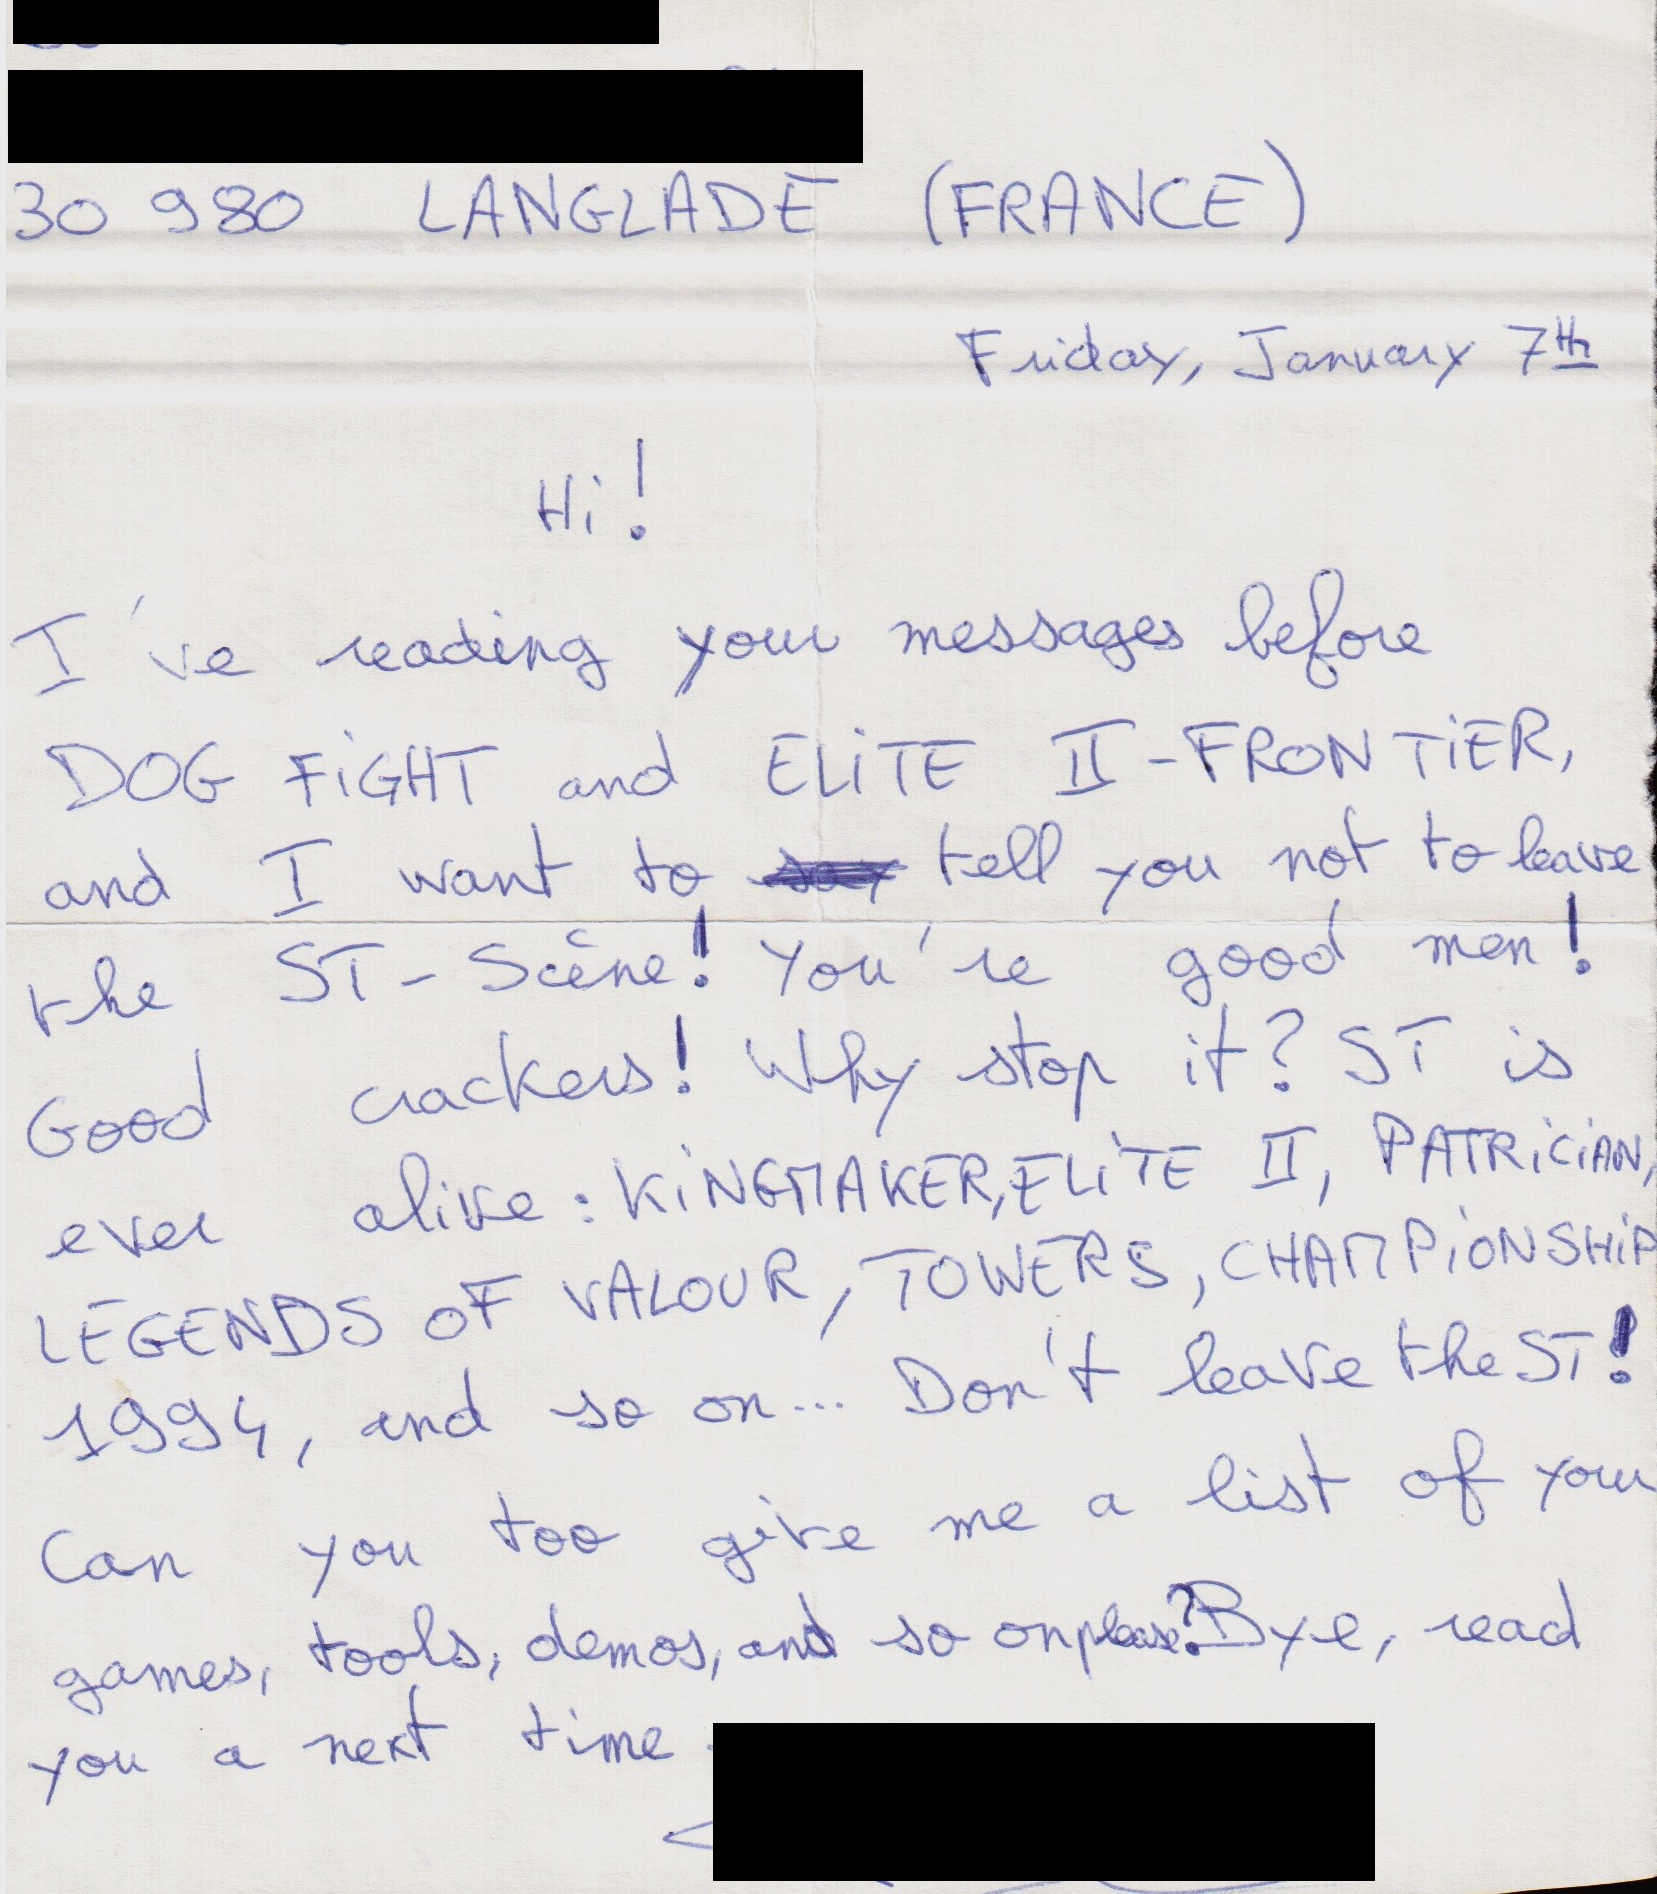 30 980 LANGLADE (FRANCE)
Friday, January 7th
Hi!
I've reading your messages before
DOG FiGHT and ELiTE II-FRONTiER,
and I want to say tell you not to leave
the ST-Scène! You're good men!
Good crackers! Why stop it? ST is
ever alive: KiNGMAKER, ELiTE II, PATRiCiAN,
LEGENDS OF VALOUR, TOWERS, CHAMPiONSHiP
1994, and so on... Don't leave the ST!
Can you too give me a list of your
games, tools, demos, and so on please? Bye, read
you a next time.